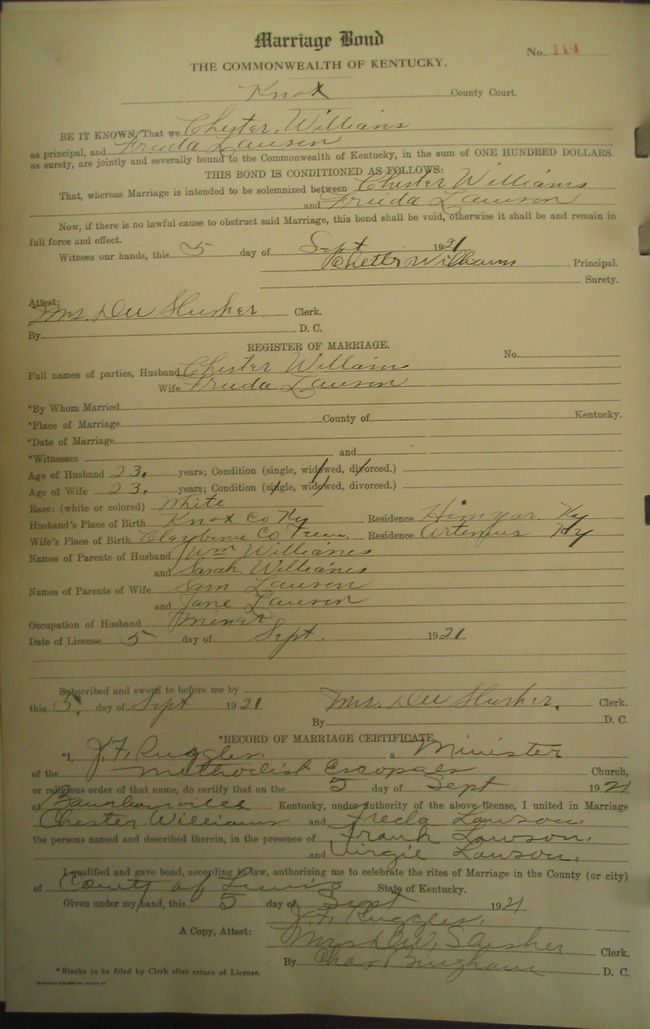 Marriage Bond
No. 114
THE COMMONWEALTH OF KENTUCKY.
Knox County Court.
BE IT KNOWN, That we Chester Williams
as principal, and Freda Lawson
as surety, are jointly and severally bound to the Commonwealth of Kentucky, in the sum of ONE HUNDRED DOLLARS.
THIS BOND IS CONDITIONED AS FOLLOWS:
That, whereas Marriage is intended to be solemnized between Chester Williams
and Freda Lawson
Now, if there is no lawful cause to obstruct said Marriage, this bond shall be void, otherwise it shall be and remain in
full force and effect.
Witness our hands, this 5 day of Sept 1921
Chester Williams Principal.
Surety.
Attest:
Mrs. Dee Slusher Clerk.
By D. C.
REGISTER OF MARRIAGE.
Full names of parties, Husband Chester Williams No.
Wife Freda Lawson
*By Whom Married
*Place of Marriage County of Kentucky.
*Date of Marriage
*Witnesses and
Age of Husband 23. years; Condition (single, widowed, divorced.)
Age of Wife 23. years; Condition (single, widowed, divorced.)
Race: (white or colored) White
Husband's Place of Birth Knox Co Ky Residence Himyar Ky
Wife's Place of Birth Claybourne Co Tenn. Residence Artemus Ky
Names of Parents of Husband Wm Williams
and Sarah Williams
Names of Parents of Wife Sam Lawson
and Jane Lawson
Occupation of Husband Miner
Date of License 5 day of Sept. 1921.
Subscribed and sworn to before me by
this 5. day of Sept 1921 Mrs. Dee Slusher. Clerk.
By D. C.
*RECORD OF MARRIAGE CERTIFICATE
*I, J. F. Ruggles. a Minister
of the Methodist Church,
or religious order of that name, do certify that on the 5 day of Sept 1921
at Kentucky, under authority of the above license, I united in Marriage
Chester Williams and Freda Lawson.
the persons named and described therein, in the presence of Frank Lawson.
and Virgie Lawson.
I qualified and gave bond, according to law, authorizing me to celebrate the rites of Marriage in the County (or city)
of County of Lewis State of Kentucky.
Given under my hand, this 5 day of Sept 1921
J. F. Ruggles.
A Copy, Attest: Mrs Dee Slusher Clerk.
By Chas Bingham D. C.
*Blanks to be filled by Clerk after return of License.